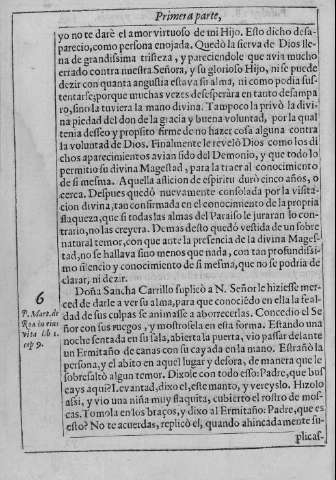 Primera parte,
yo no te darè el amor virtuoso de mi Hijo. Esto dicho desa-
parecio, como persona enojada. Quedò la sierva de Dios lle-
na de grandissima tristeza, y pareciendole que avia mucho
errado contra nuestra Señora, y su glorioso Hijo, ni se puede
dezir con quanta angustia estava su alma, ni como podia sus-
tentarse; porque muchas vezes desesperàra en tanto desampa-
ro, sino la tuviera la mano divina. Tampoco la privò la divi-
na piedad del don de la gracia y buena voluntad, por la qual
tenia desseo y proposito firme de no hazer cosa alguna contra
la voluntad de Dios. Finalmente le revelò Dios como los di
chos aparecimientos avian sido del Demonio, y que todo lo
permitio su divina Magestad, para la traer al conocimiento
de si mesma. Aquella aflicion de espiritu durò cinco años, o
cerca. Despues quedò nuevamente consolada por la visita-
cion divina, tan confirmada en el conocimiento de la propria
flaqueza, que si todas las almas del Paraiso le juraran lo con-
trario, no las creyera. Demas desto quedò vestida de un sobre
natural temor, con que ante la presencia de la divina Mages-
tad, no se hallava sino menos que nada, con tan profundissi-
mo silencio y conocimiento de si mesma, que no se podria de
clarar, ni dezir.
Doña Sancha Carrillo suplicò a N. Señor le hiziesse mer-
ced de darle a ver su alma, para que conociẽdo en ella la feal-
dad de sus culpas se animasse a aborrecerlas. Concedio el Se
ñor con sus ruegos, y mostrosela en esta forma. Estando una
noche sentada en su sala, abierta la puerta, vio passar delante
un Ermitaño de canas con su cayada en la mano. Estrañò la
persona, y el abito en aquel lugar y desora, de manera que le
sobresaltò algun temor. Dixole con todo esso: Padre, que bus
cays aqui? Levantad, dixo el, este manto, y vereyslo. Hizolo
assi, y vio una niña muy flaquita, cubierto el rostro de mos-
cas. Tomola en los braços, y dixo al Ermitaño: Padre, que es
esto? No te acuerdas, replicò el, quando ahincadamente su-
plicas-
6
P. Mart. de
Roa in eius
vita lib 1.
cap 9.